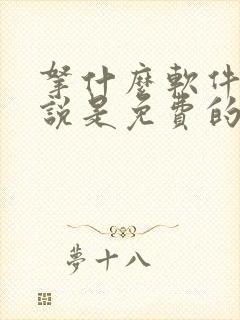 拏什麼軟件
說是免費的
夢十八